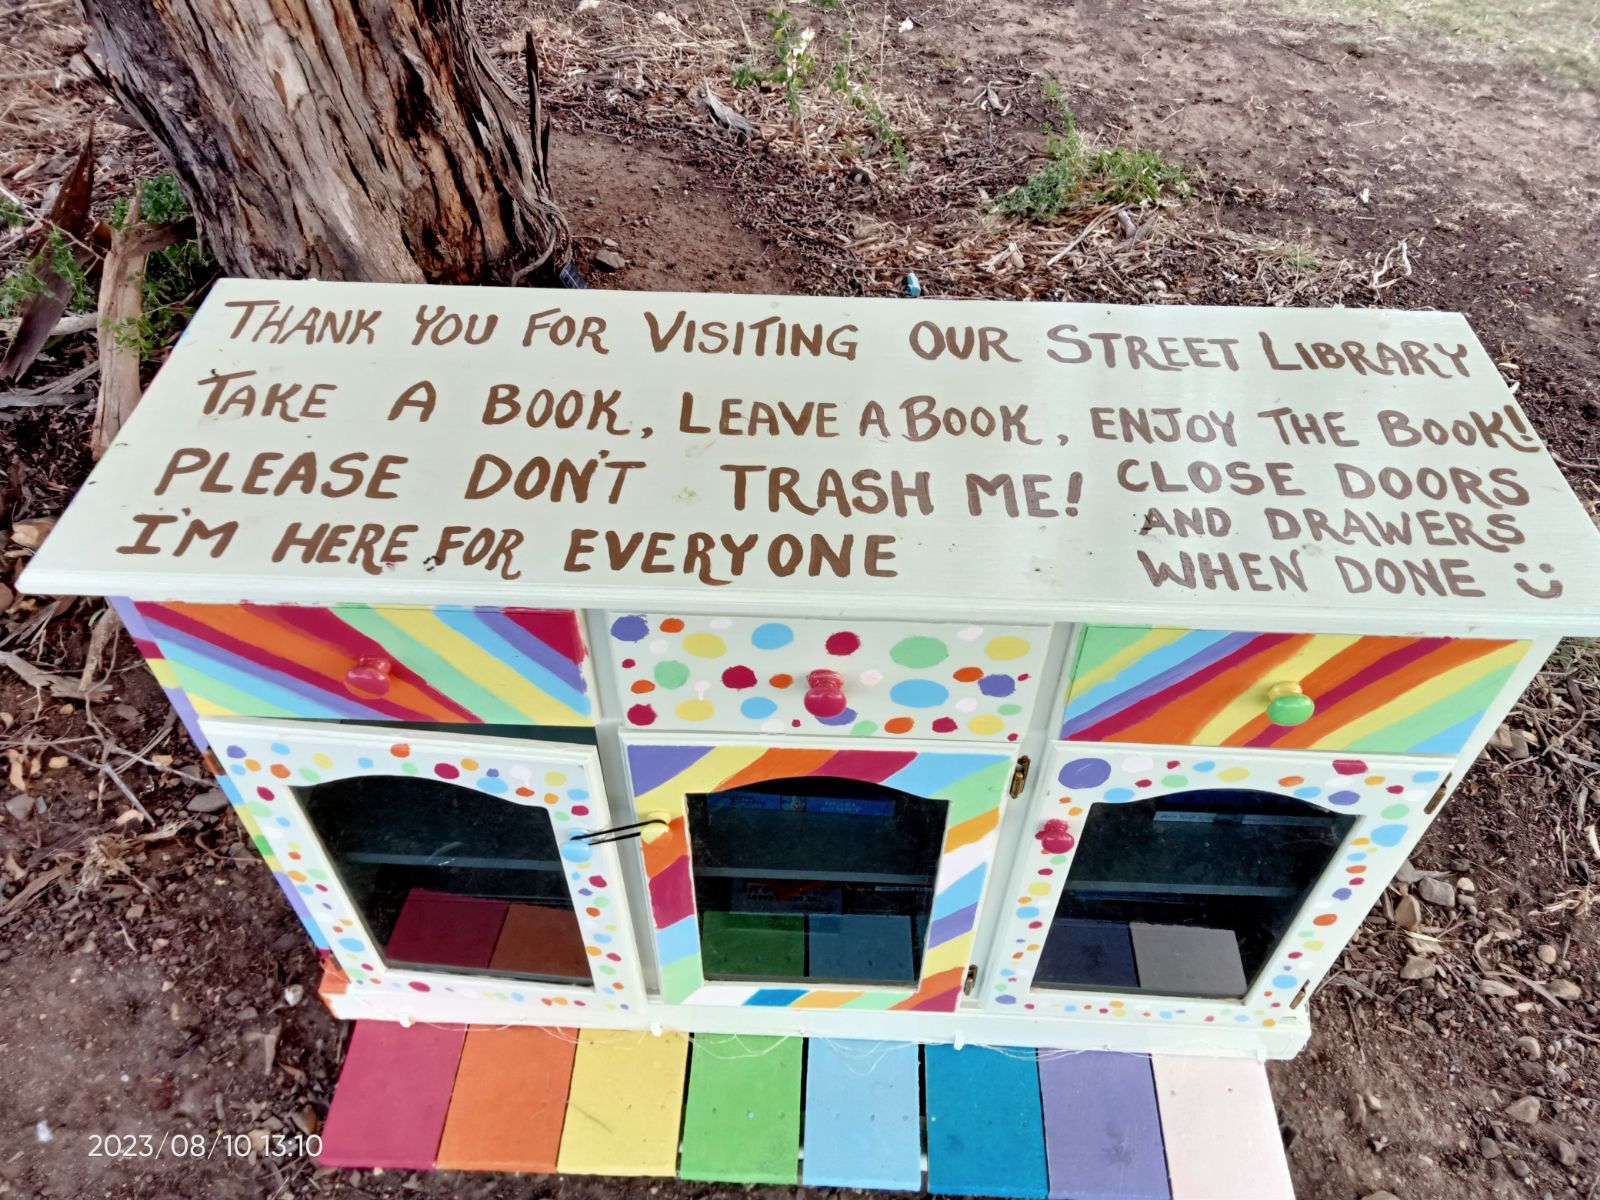 THANK YOU FOR VISITING OUR STREET LIBRARY
TAKE A BOOK, LEAVE A BOOK, ENJOY THE BOOK!
PLEASE DON'T TRASH ME!
I'M HERE FOR EVERYONE
CLOSE DOORS
AND DRAWERS
WHEN DONE
2023/08/10 13:10